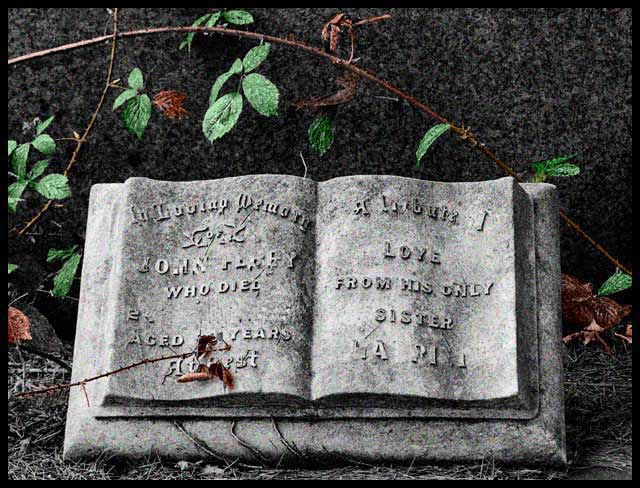 In Loving Memory
OF
JOHN
WHO DIED
AGED YEARS
At Rest
A Tribute of
LOVE
FROM HIS ONLY
SISTER